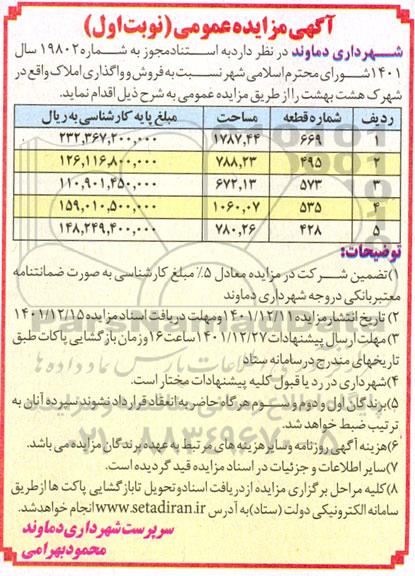 آگهی مزایده عمومی (نوبت اول)
شهرداری دماوند در نظر دارد به استناد مجوز به شماره ۱۹۸۰۲ سال
۱۴۰۱ شورای محترم اسلامی شهر نسبت به فروش و واگذاری املاک واقع در
شهرک هشت بهشت را از طریق مزایده عمومی به شرح ذیل اقدام نماید.
ردیف شماره قطعه مساحت مبلغ پایه کارشناسی به ریال
۱ ۶۶۹ ۱۷۸۷,۴۴ ۲۳۲,۳۶۷,۲۰۰,۰۰۰
۲ ۴۹۵ ۷۸۸,۲۳ ۱۲۶,۱۱۶,۸۰۰,۰۰۰
۳ ۵۷۳ ۶۷۲,۱۳ ۱۱۰,۹۰۱,۴۵۰,۰۰۰
۴ ۵۳۵ ۱۰۶۰,۰۷ ۱۵۹,۰۱۰,۵۰۰,۰۰۰
۵ ۴۲۸ ۷۸۰,۲۶ ۱۴۸,۲۴۹,۴۰۰,۰۰۰
توضیحات:
۱) تضمین شرکت در مزایده معادل ۵٪ مبلغ کارشناسی به صورت ضمانتنامه
معتبر بانکی در وجه شهرداری دماوند
۲) تاریخ انتشار مزایده ۱۴۰۱/۱۲/۱۱ و مهلت دریافت اسناد مزایده ۱۴۰۱/۱۲/۱۵
۳) مهلت ارسال پیشنهادات ۱۴۰۱/۱۲/۲۷ ساعت ۱۶ و زمان بازگشایی پاکات طبق
تاریخهای مندرج در سامانه ستاد
۴) شهرداری در رد یا قبول کلیه پیشنهادات مختار است.
۵) برندگان اول و دوم و سوم هرگاه حاضر به انعقاد قرارداد نشوند سپرده آنان به
ترتیب ضبط خواهد شد.
۶) هزینه آگهی روزنامه و سایر هزینه های مرتبط به عهده برندگان مزایده می باشد.
۷) سایر اطلاعات و جزئیات در اسناد مزایده قید گردیده است.
۸) کلیه مراحل برگزاری مزایده از دریافت اسناد و تحویل تا بازگشایی پاکت ها از طریق
سامانه الکترونیکی دولت (ستاد) به آدرس www.setadiran.ir انجام خواهد شد.
سرپرست شهرداری دماوند
محمود بهرامی
ParsNamadData
۰۲۱-۸۸۳۴۹۶۷۰-۵